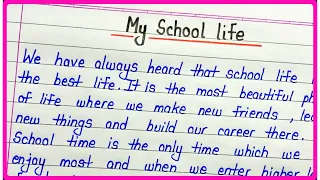 My School life
We have always heard that school life
the best life. It is the most beautiful
of life where we make new friends,
new things and build our career there.
School time is the only time which we
enjoy most and when we enter higher